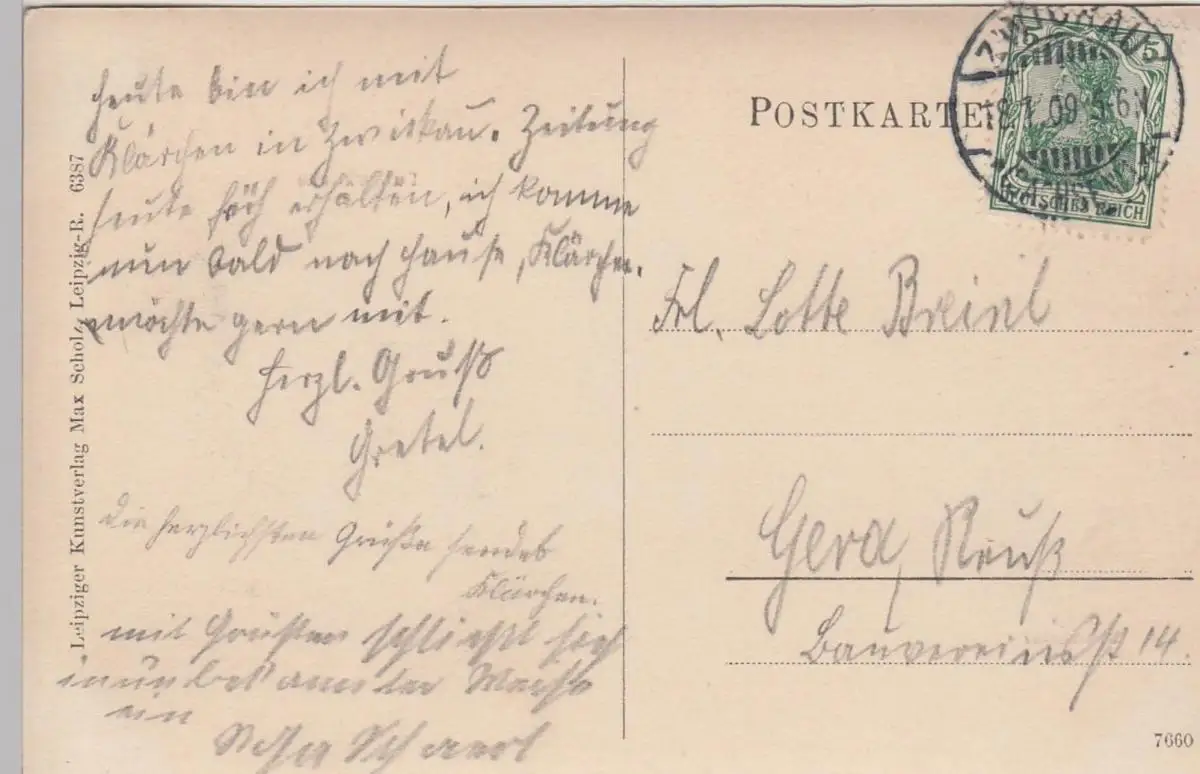 Heute bin ich mit
Klärchen in Zwickau. Zeitung
heute erhalten, ich komme
nun bald nach Hause, Klärchen
möchte gern mit.
Herzl. Gruß
Gretel.
Die herzlichsten Grüße sendet
Klärchen.
mit Grüßen schließt sich
in unbekannter Weise
ein
Leipziger Kunstverlag Max Scholz, Leipzig-R. 6387
POSTKARTE
ZWICKAU
18.1.09 5-6N
(SACHSEN)
5 5
DEUTSCHES REICH
Frl. Lotte Breinl
Gera, Reuß
Bauvereinsst 14.
7660